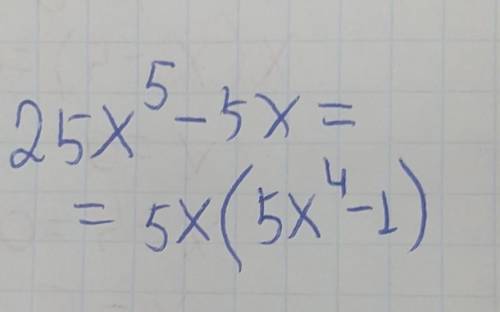 25x⁵-5x=
=5x(5x⁴-1)